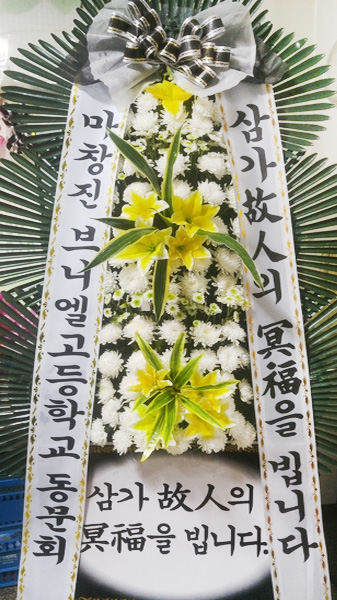 삼가 故人의 冥福을 빕니다
마창진 브니엘고등학교 동문회
삼가 故人의
冥福을 빕니다.